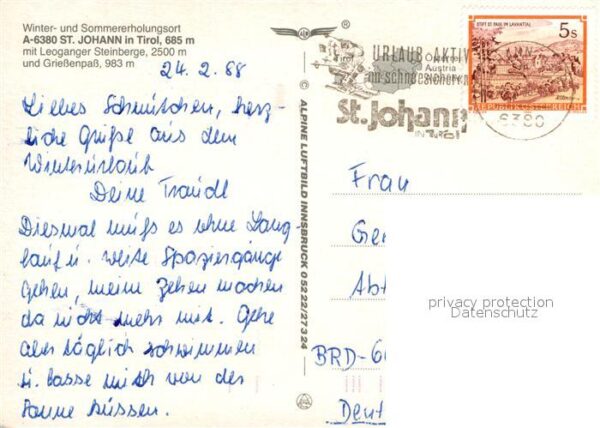 Winter- und Sommererholungsort
A-6380 ST. JOHANN in Tirol, 685 m
mit Leoganger Steinberge, 2500 m
und Grießenpaß, 983 m
24. 2. 88
Liebes Schmütschen, herz-
liche Grüße aus dem
Winterurlaub
Deine Traudl
Diesmal muß es ohne Lang
lauf u. weite Spaziergänge
gehen, meine Zehen machen
da nicht mehr mit. Gehe
aber täglich schwimmen
u. lasse mich von der
Sonne küssen.
© ALPINE LUFTBILD INNSBRUCK 05222/27324
URLAUB AKTIV
im schneesicheren
St. Johann
IN TIROL
Austria
STIFT ST. PAUL IM LAVANTTAL
5 S
REPUBLIK ÖSTERREICH
6380
Frau
Ger
Abt
privacy protection
Datenschutz
BRD-6
Deut